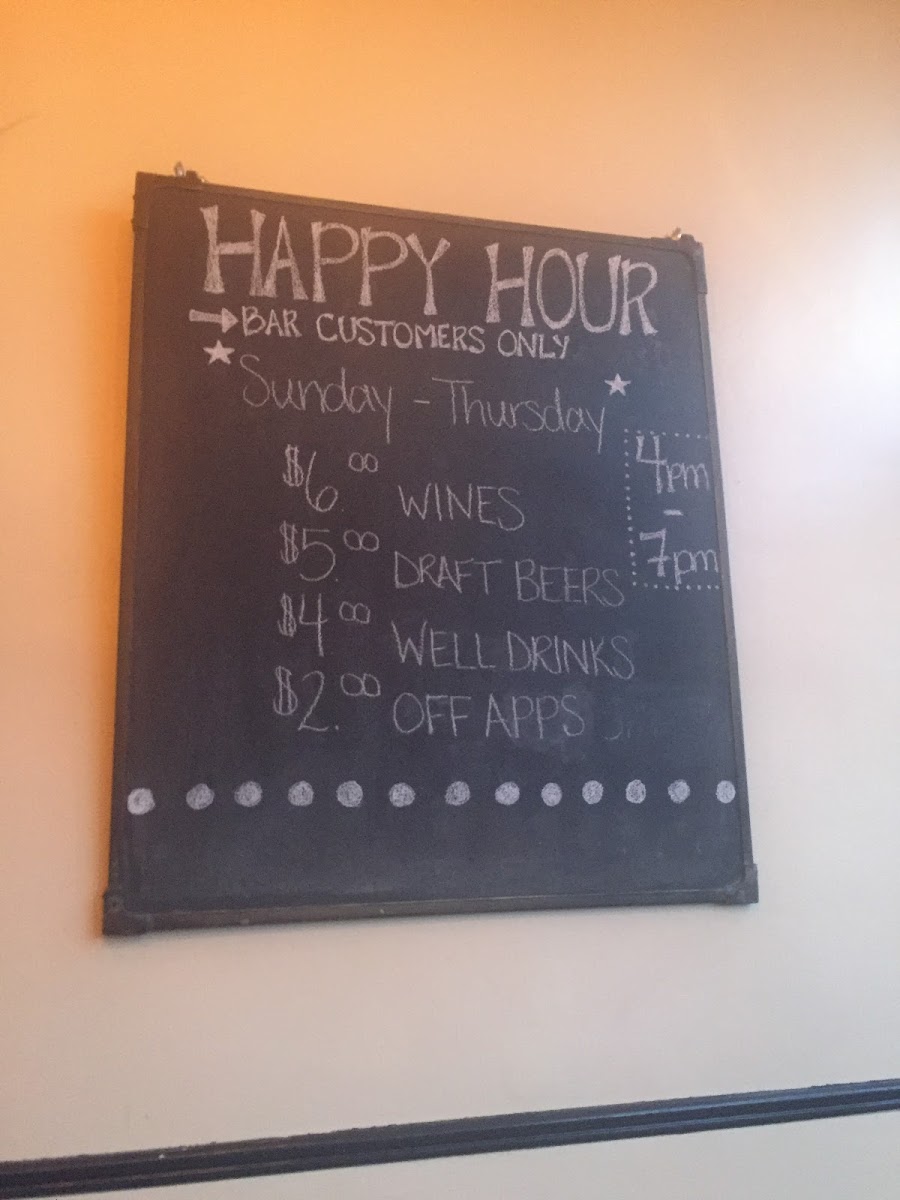 HAPPY HOUR
→BAR CUSTOMERS ONLY
★Sunday - Thursday★
4pm
-
7pm
$6.00 WINES
$5.00 DRAFT BEERS
$4.00 WELL DRINKS
$2.00 OFF APPS